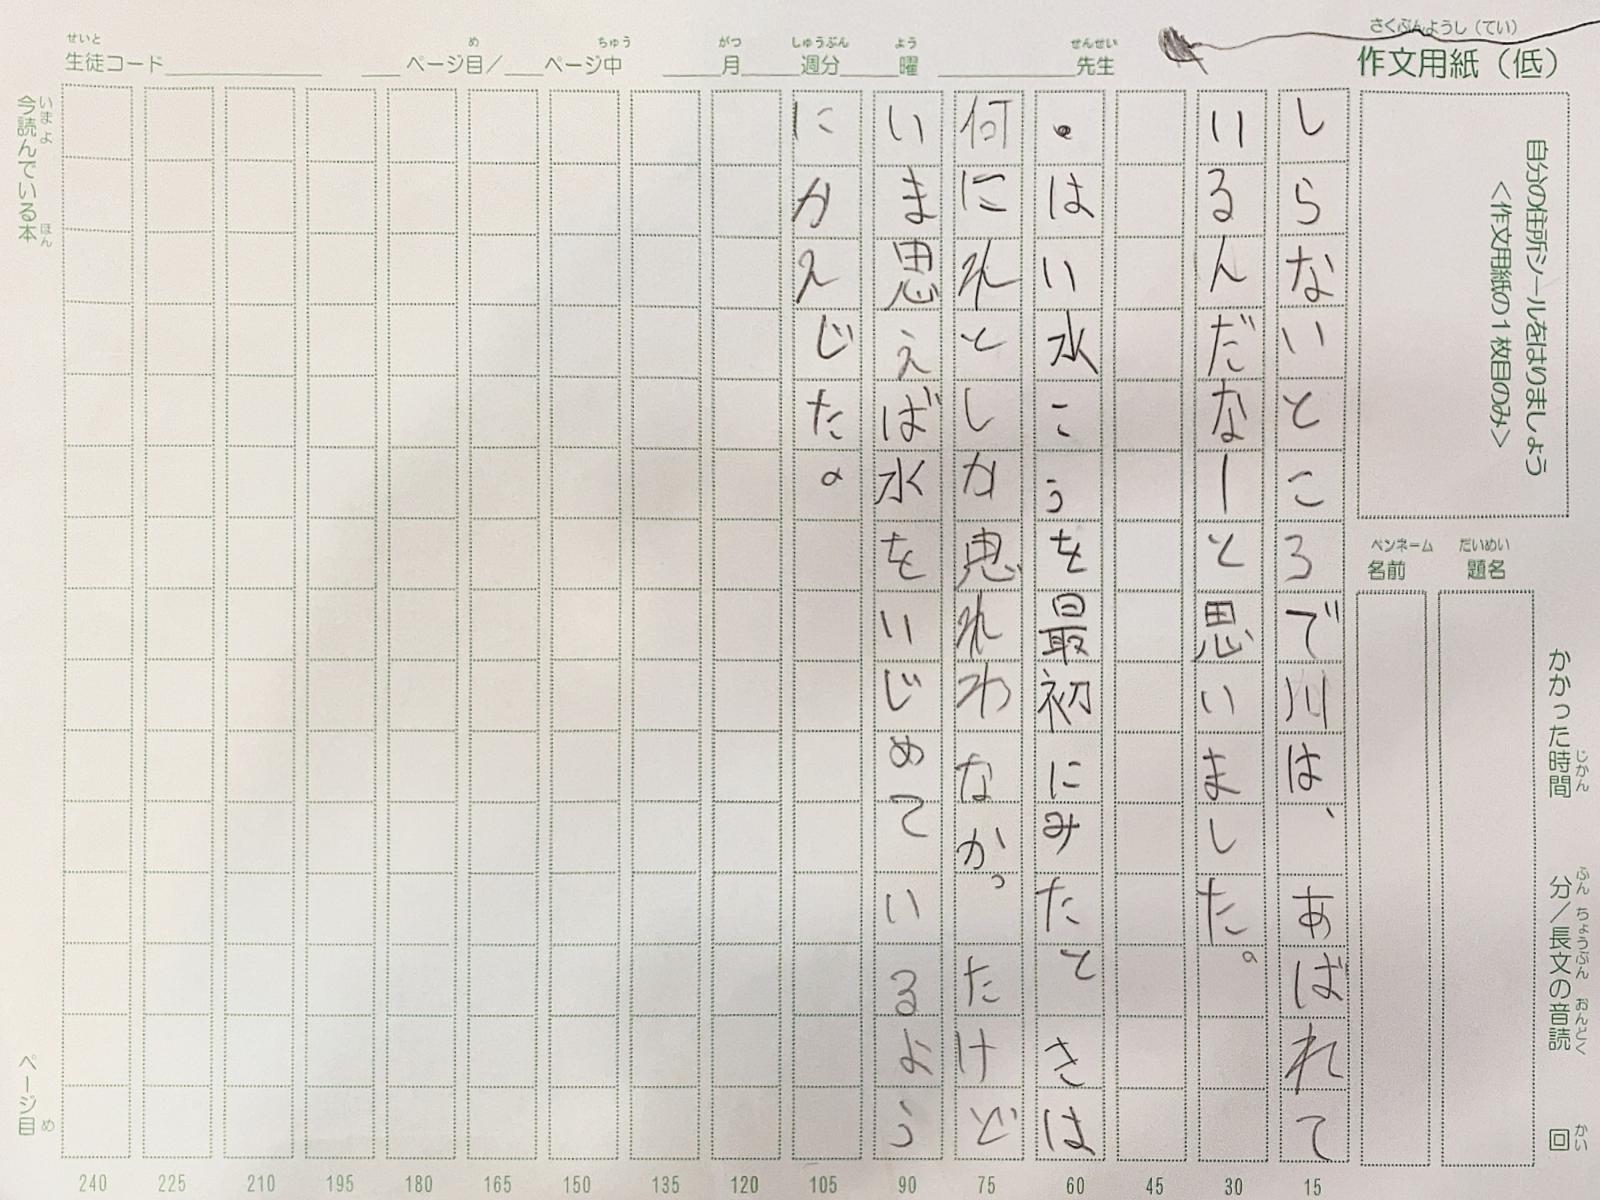 さくぶんようし（てい）
作文用紙（低）
せいと
生徒コード
め
ちゅう
ページ目／ページ中
がつ
しゅうぶん
よう
月 週分 曜
せんせい
先生
自分の住所シールをはりましょう
＜作文用紙の１枚目のみ＞
だいめい
題名
ペンネーム
名前
かかった時間
じかん
分／長文の音読
ふん ちょうぶん おんどく
回
かい
しらないところで川は、あばれて
いるんだなーと思いました。
・はい水こうを最初にみたときは
何にれとしか思れわなかったけど
いま思えば水をいじめているよう
にかんじた。
いまよ ほん
今読んでいる本
ページ目
め
240 225 210 195 180 165 150 135 120 105 90 75 60 45 30 15